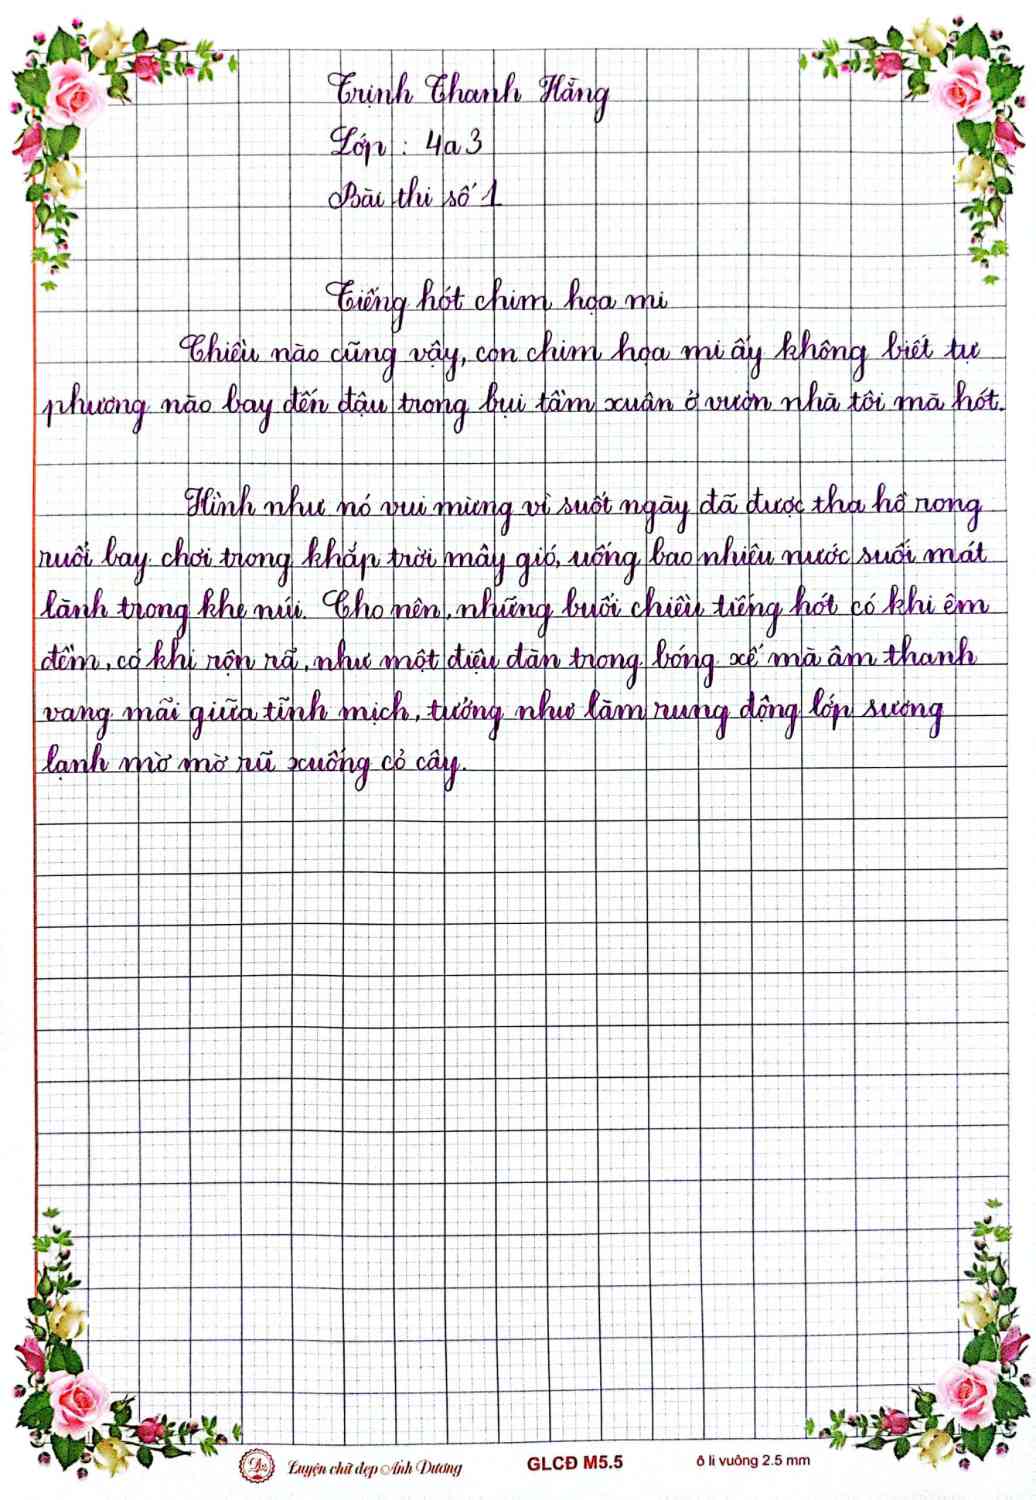 Trịnh Thanh Hằng
Lớp : 4a3
Bài thi số 1
Tiếng hót chim họa mi
Chiều nào cũng vậy, con chim họa mi ấy không biết tự
phương nào bay đến đậu trong bụi tầm xuân ở vườn nhà tôi mà hót.
Hình như nó vui mừng vì suốt ngày đã được tha hồ rong
ruổi bay chơi trong khắp trời mây gió, uống bao nhiêu nước suối mát
lành trong khe núi. Cho nên, những buổi chiều tiếng hót có khi êm
đềm, có khi rộn rã, như một điệu đàn trong bóng xế mà âm thanh
vang mãi giữa tĩnh mịch, tưởng như làm rung động lớp sương
lạnh mờ mờ rũ xuống cỏ cây.
Luyện chữ đẹp Ánh Dương
GLCĐ M5.5
ô li vuông 2.5 mm